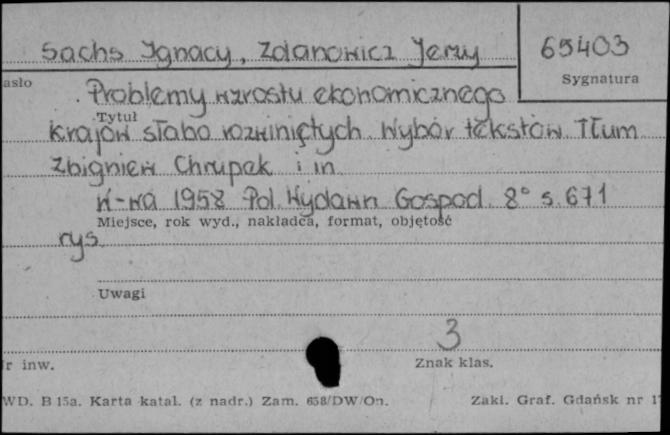 Sachs Ignacy, Zdanowicz Jerzy 65403
asło Sygnatura
Problemy wzrostu ekonomicznego
Tytuł
krajów słabo rozwiniętych. Wybór tekstów. Tłum
Zbigniew Chrupek i in
W-wa 1958 Pol. Wydawn Gospod. 8° s. 671
Miejsce, rok wyd., nakładca, format, objętość
rys.
Uwagi
3
r inw. Znak klas.
WD. B 15a. Karta katal. (z nadr.) Zam. 658/DW/On. Zakł. Graf. Gdańsk nr 1